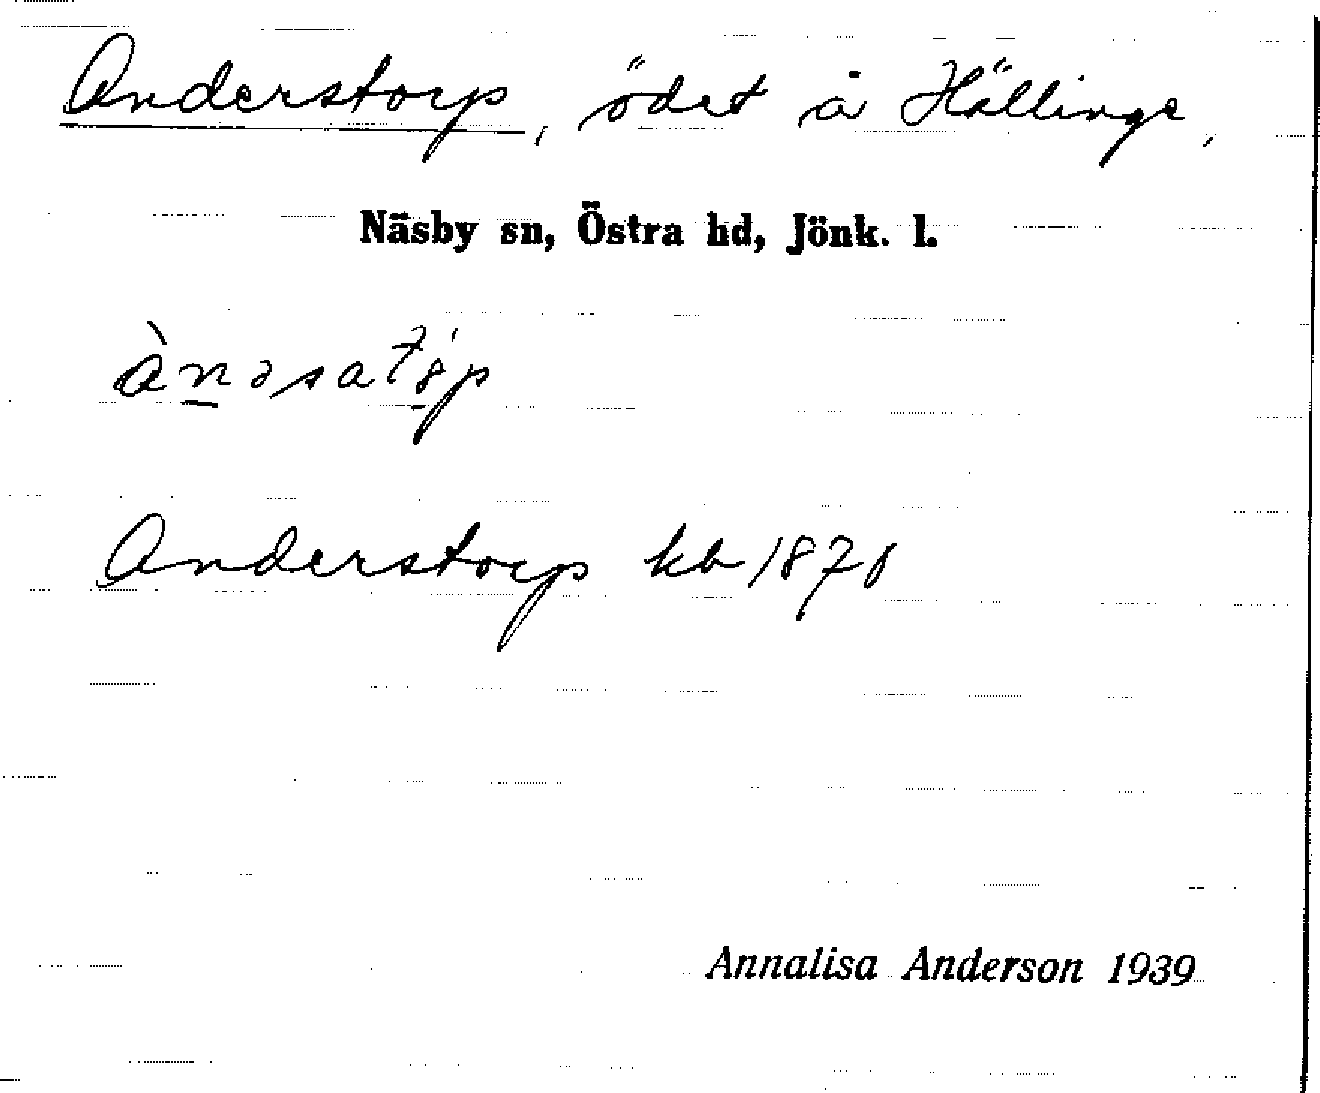 Anderstorp, ödet å Hällinge,
Näsby sn, Östra hd, Jönk. l.
Anderstorp kb 1870
Annalisa Anderson 1939